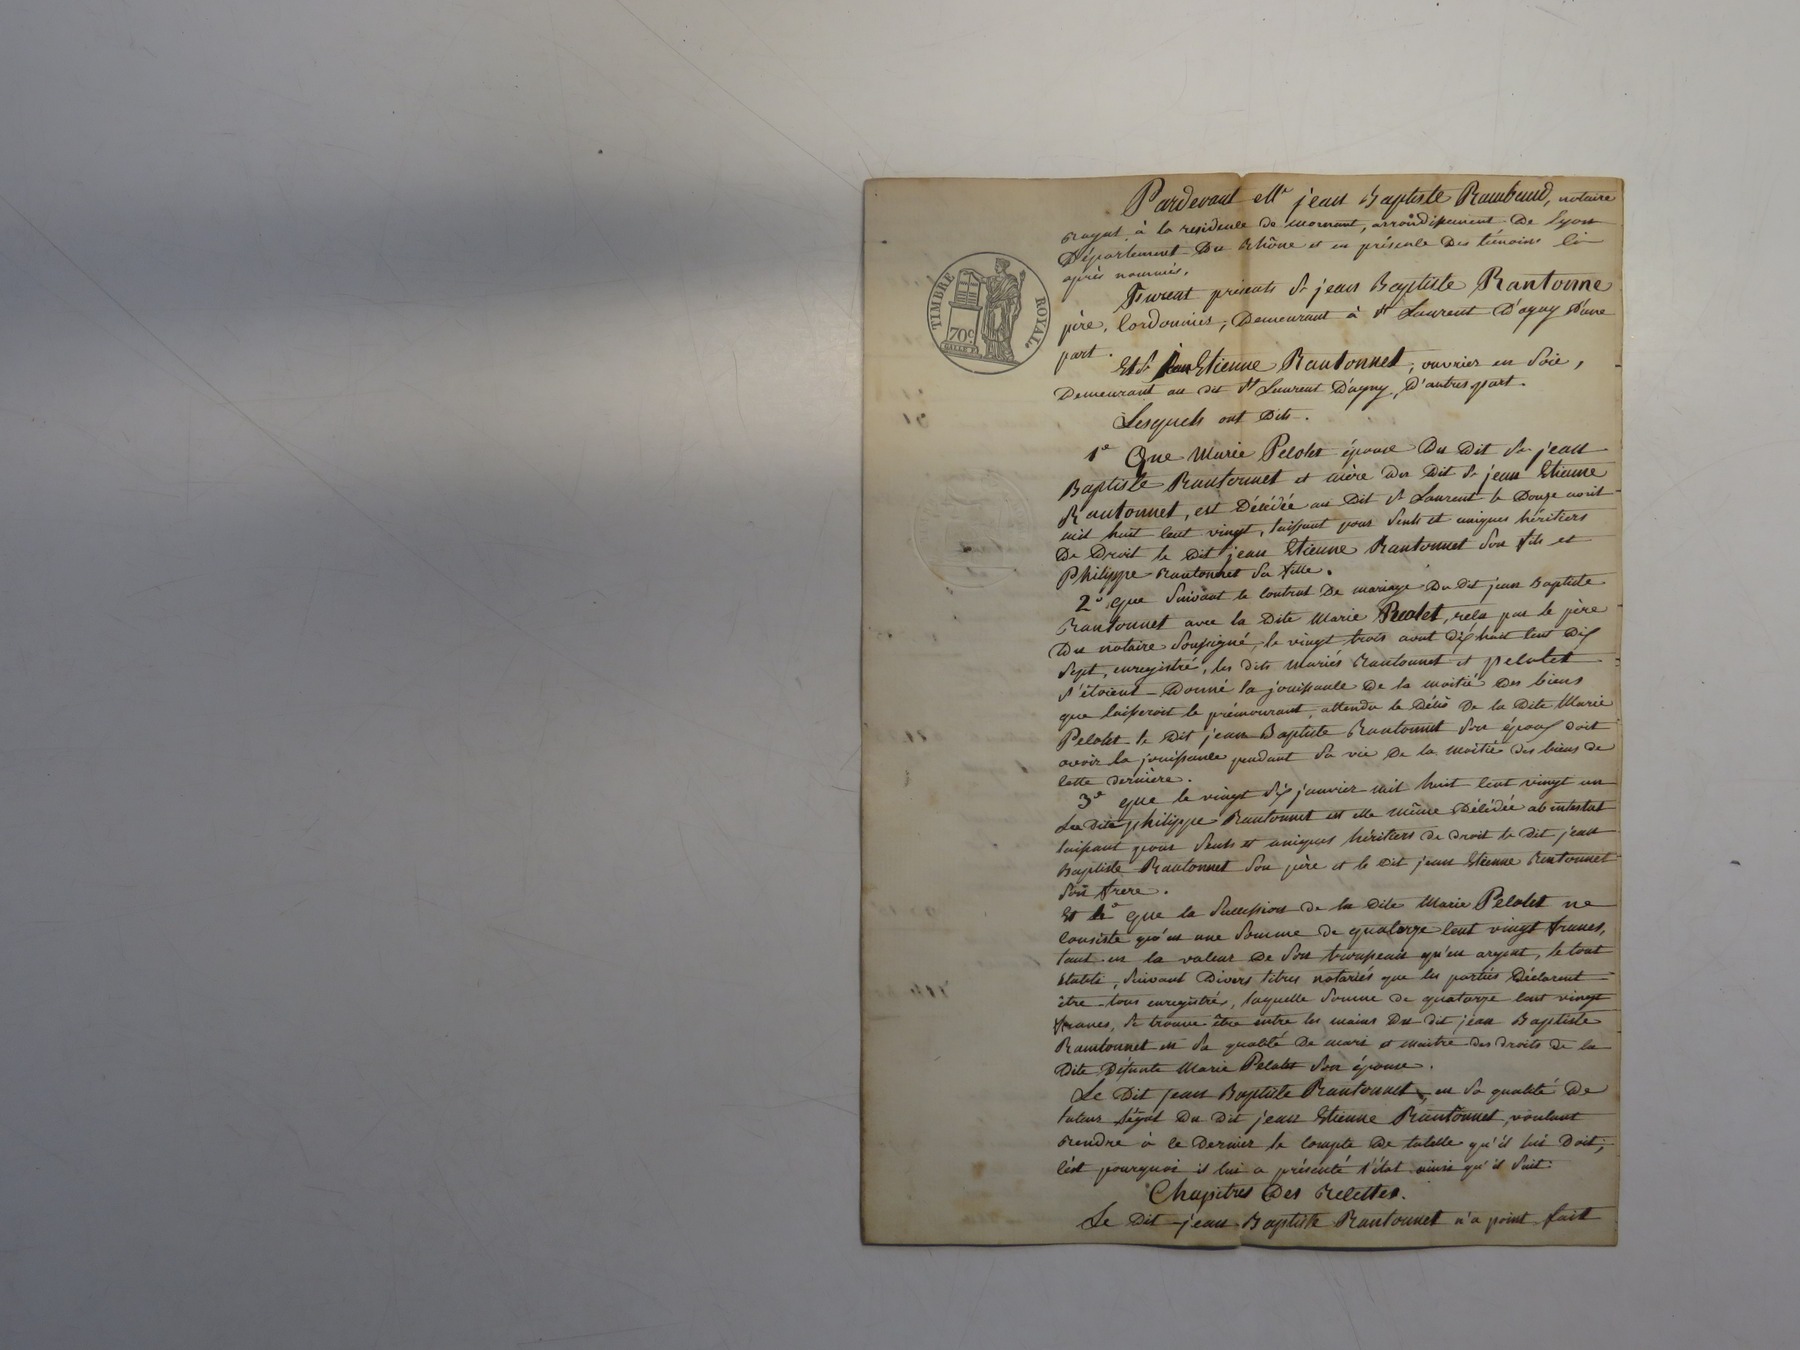 Pardevant Me jean Baptiste Rambaud, notaire
royal, à la residence de mornant, arrondissement De Lyon
Département Du Rhône et en présence Des témoins ci-
après nommés,
TIMBRE ROYAL
70c
Furent présents Sr jean Baptiste Rantonne
père, Cordonnier, Demeurant à St Laurent D'agny D'une
part.
Et Sr Etienne Rantonnet, ouvrier en Soie,
Demeurant au dit St Laurent D'agny, D'autre part.
Lesquels ont Dit.
1o Que Marie Pelolet épouse Du Dit Sr jean
Baptiste Rantonnet et mère du Dit Sr jean Etienne
Rantonnet, est Décédée au Dit St Laurent le Douze avril
mil huit cent vingt, laissant pour Seuls et uniques héritiers
De Droit le Dit jean Etienne Rantonnet Son fils et
Philippe Rantonnet Sa fille.
2o Que Suivant le Contrat De mariage Du Dit jean Baptiste
Rantonnet avec la Dite Marie Pelolet, reçu par le père
Du notaire Soussigné, le vingt trois aout Dix huit cent Dix
Sept, enregistré, les dits mariés Rantonnet et pelolet
S'étoient Donné la jouissance De la moitié Des biens
que laisseroit le prémourant, attendu le Décès De la Dite Marie
Pelolet le Dit jean Baptiste Rantonnet Son époux doit
avoir la jouissance pendant Sa vie De la moitié des biens de
cette dernière.
3o Que le vingt Six janvier mil huit cent vingt un
La dite philippe Rantonnet est elle même Décédée ab intestat
laissant pour Seuls et uniques héritiers de droit le dit jean
Baptiste Rantonnet Son père et le Dit jean Etienne Rantonnet
Son frere.
Et 4o Que la Succession de la Dite Marie Pelolet ne
Consiste qu'en une Somme de quatorze cent vingt francs,
tant en la valeur De Son trousseau qu'en argent, le tout
établi, Suivant Divers titres notariés que les parties Déclarent
être tous enregistrés, laquelle Somme de quatorze cent vingt
francs, Se trouve être entre les mains Du dit jean Baptiste
Rantonnet en Sa qualité De mari et maitre des droits de la
Dite Défunte Marie Pelolet Son épouse.
Le Dit jean Baptiste Rantonnet, en Sa qualité De
tuteur Légal Du Dit jean Etienne Rantonnet, voulant
Rendre à Ce Dernier le Compte De tutelle qu'il lui Doit;
C'est pourquoi il lui a présenté l'état ainsi qu'il Suit:
Chapitres Des Recettes.
Le Dit jean Baptiste Rantonnet n'a point fait